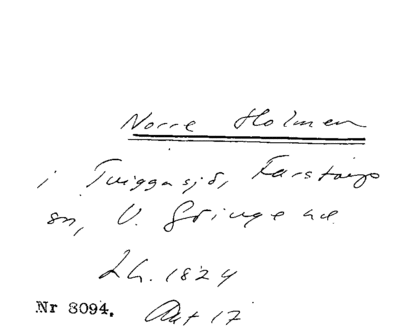 Norre Holmen
i Tviggasjö, Farstorps
sn, V. Göinge hd
Lh. 1824
Nr 3094. Akt 17